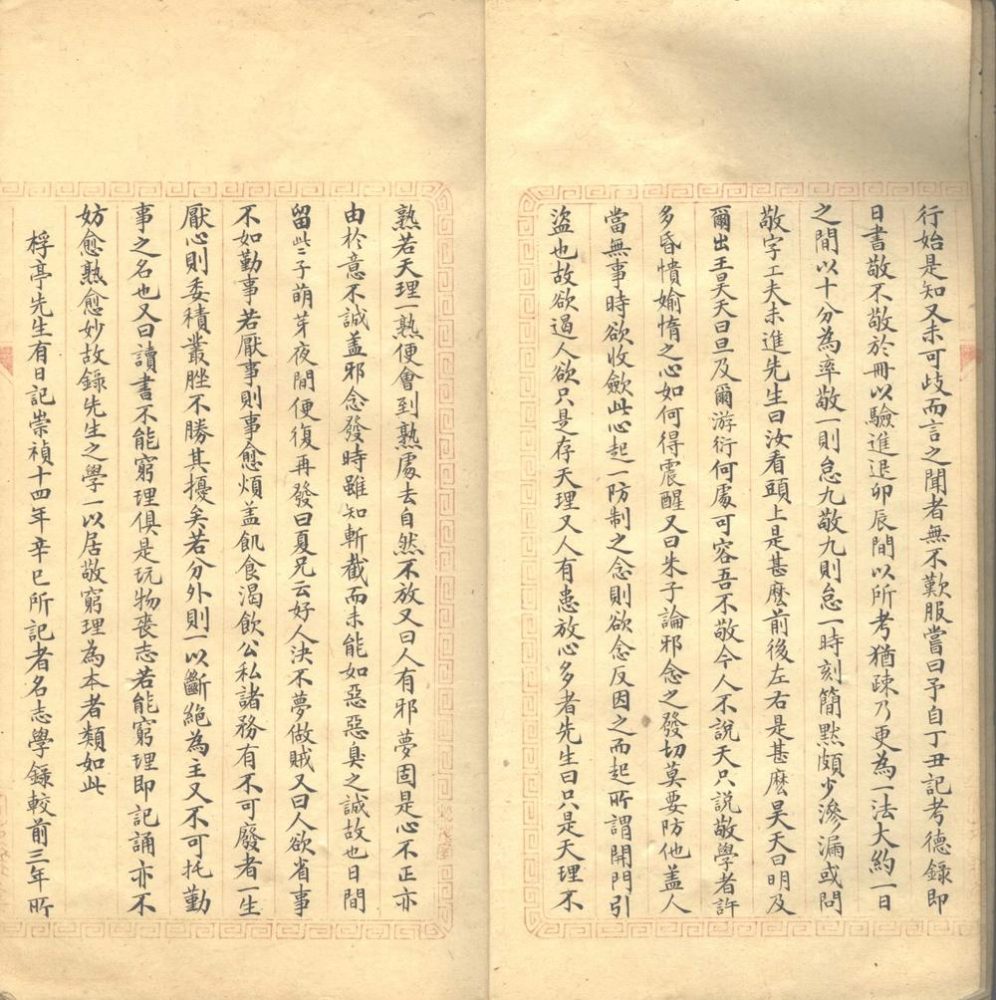 行始是知又未可歧而言之聞者無不歎服嘗曰予自丁丑記考德錄即
日書敬不敬於冊以驗進退卯辰間以所考猶疎乃更為一法大約一日
之間以十分為率敬一則怠九敬九則怠一時刻簡點頗少滲漏或問
敬字工夫未進先生曰汝看頭上是甚麼前後左右是甚麼昊天曰明及
爾出王昊天曰旦及爾游衍何處可容吾不敬今人不說天只說敬學者許
多昏憒媮惰之心如何得震醒又曰朱子論邪念之發切莫要防他蓋人
當無事時欲收斂此心起一防制之念則欲念反因之而起所謂開門引
盜也故欲遏人欲只是存天理又人有患放心多者先生曰只是天理不
熟若天理一熟便會到熟處去自然不放又曰人有邪夢固是心不正亦
由於意不誠蓋邪念發時雖知斬截而未能如惡惡臭之誠故也日間
留些子萌芽夜間便復再發曰夏兄云好人決不夢做賊又曰人欲省事
不如勤事若厭事則事愈煩蓋飢食渴飲公私諸務有不可廢者一生
厭心則委積叢脞不勝其擾矣若分外則一以斷絕為主又不可托勤
事之名也又曰讀書不能窮理俱是玩物喪志若能窮理即記誦亦不
妨愈熟愈妙故錄先生之學一以居敬窮理為本者類如此
桴亭先生有日記崇禎十四年辛巳所記者名志學錄較前三年所